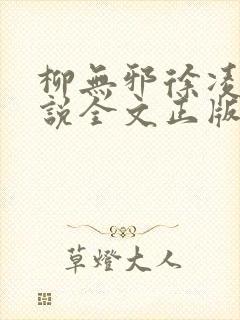 柳無邪徐凌
說全文正版
草燈大人